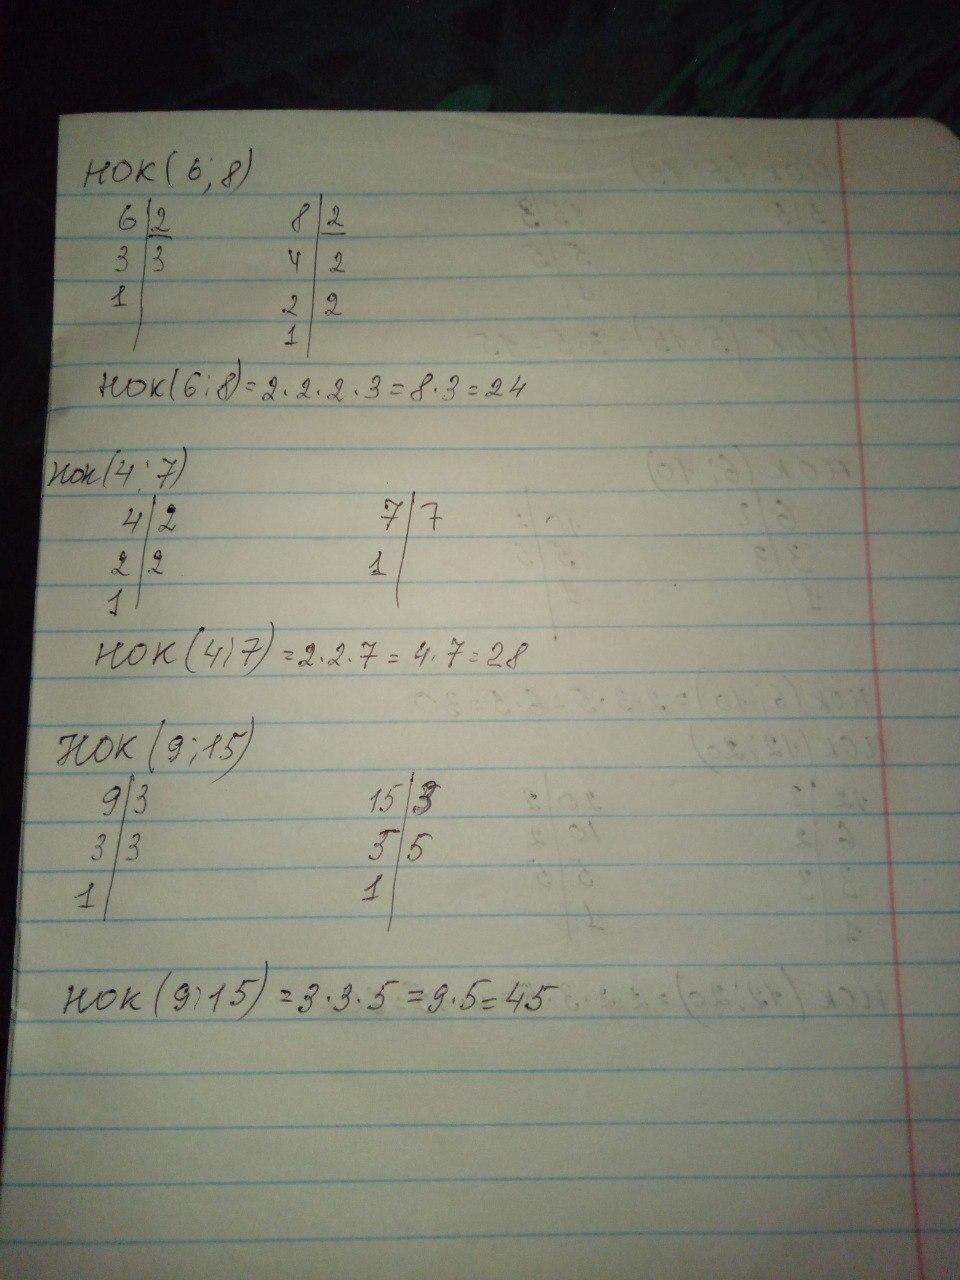 НОК(6;8)
6|2 8|2
3|3 4|2
1| 2|2
1|
НОК(6;8)=2·2·2·3=8·3=24
НОК(4;7)
4|2 7|7
2|2 1|
1|
НОК(4;7)=2·2·7=4·7=28
НОК(9;15)
9|3 15|3
3|3 5|5
1| 1|
НОК(9;15)=3·3·5=9·5=45